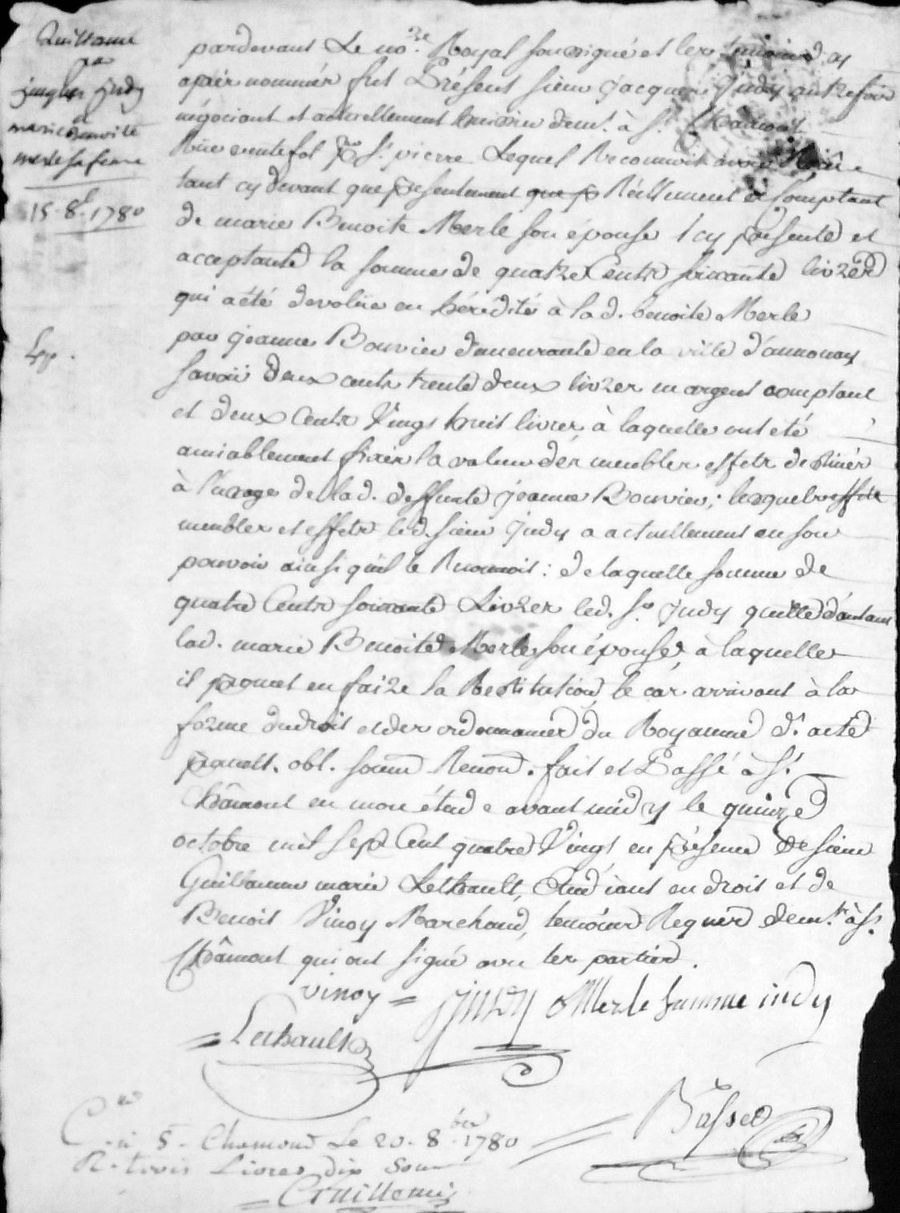 Quittance
pr
jacques judy
marie benoite
merle sa femme
15. 8e. 1780
Exp.
pardevant Le nore. Royal soussigné et les temoins cy
apres nommés fut Présent sieur jacques judy autrefois
négociant et actuellement demt. à St. Chamont
Rue St. pierre Lequel Reconnoit avoir
tant cy devant que présentement que Réellement Comptant
de marie Benoite Merle son épouse Icy présente et
acceptante la somme de quatre Cents soixante livres
qui a été devolue en hérédité à lad. benoite Merle
par jeanne Bouvier demeurante en la ville d'annonay
savoir deux cents trente deux livres en argent comptant
et deux Cents Vingt huit livres à laquelle ont été
amiablement fixés la valeur des meubles effets destinés
à l'usage de lad. deffunte jeanne Bouvier; lesquels
meubles et effets led. sieur judy a actuellement en son
pouvoir ainsi qu'il le Reconnoit: de laquelle somme de
quatre Cents soixante Livres led. sr. judy quitte d'autant
lad. marie Benoite Merle son épouse, à laquelle
il promet en faire la Restitution, le cas arrivant à la
forme du droit et des ordonnances du Royaume dt. acte
promett. obl. soum. Renon. fait et Passé à St.
Chamont en mon étude avant midy le quinze
octobre mil sept Cent quatre Vingt en présence de sieur
Guillaume marie Lethault, Etudiant en droit et de
Benoit Vinoy Marchand, temoins Requis demt. à St.
Chamont qui ont signé avec les parties.
vinoy judy Merle famme indy
Lethault
Basset
C. à S. Chamond Le 20. 8bre 1780
R. trois Livres dix sous
Guillemin